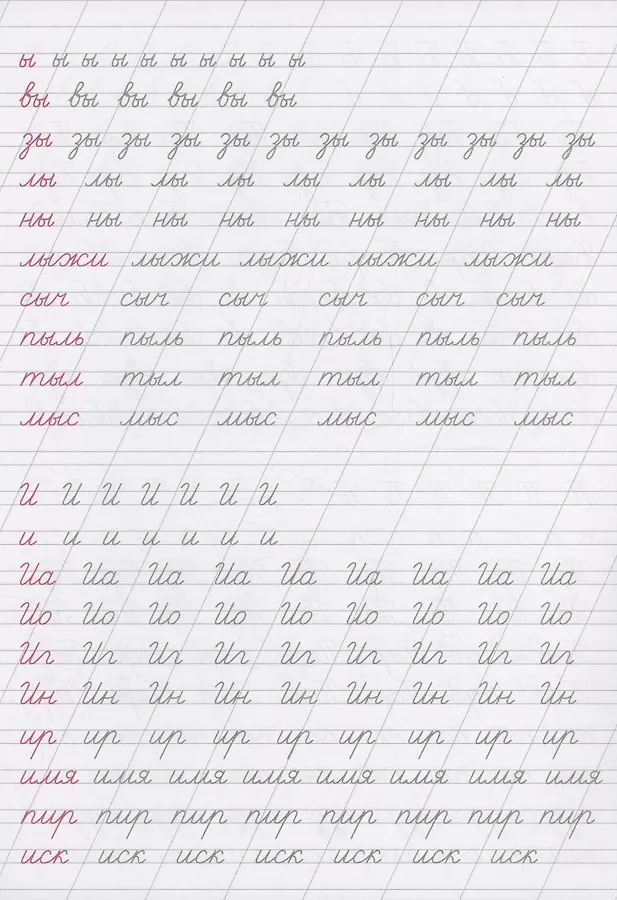 ы ы ы ы ы ы ы ы ы ы
вы вы вы вы вы вы
зы зы зы зы зы зы зы зы зы зы зы зы
лы лы лы лы лы лы лы лы лы
ны ны ны ны ны ны ны ны ны
лыжи лыжи лыжи лыжи лыжи
сыч сыч сыч сыч сыч сыч
пыль пыль пыль пыль пыль пыль
тыл тыл тыл тыл тыл тыл
мыс мыс мыс мыс мыс мыс
И И И И И И И
и и и и и и и
Иа Иа Иа Иа Иа Иа Иа Иа Иа
Ио Ио Ио Ио Ио Ио Ио Ио Ио
Иг Иг Иг Иг Иг Иг Иг Иг Иг
Ин Ин Ин Ин Ин Ин Ин Ин Ин
ир ир ир ир ир ир ир ир ир
имя имя имя имя имя имя имя имя
пир пир пир пир пир пир пир пир
иск иск иск иск иск иск иск